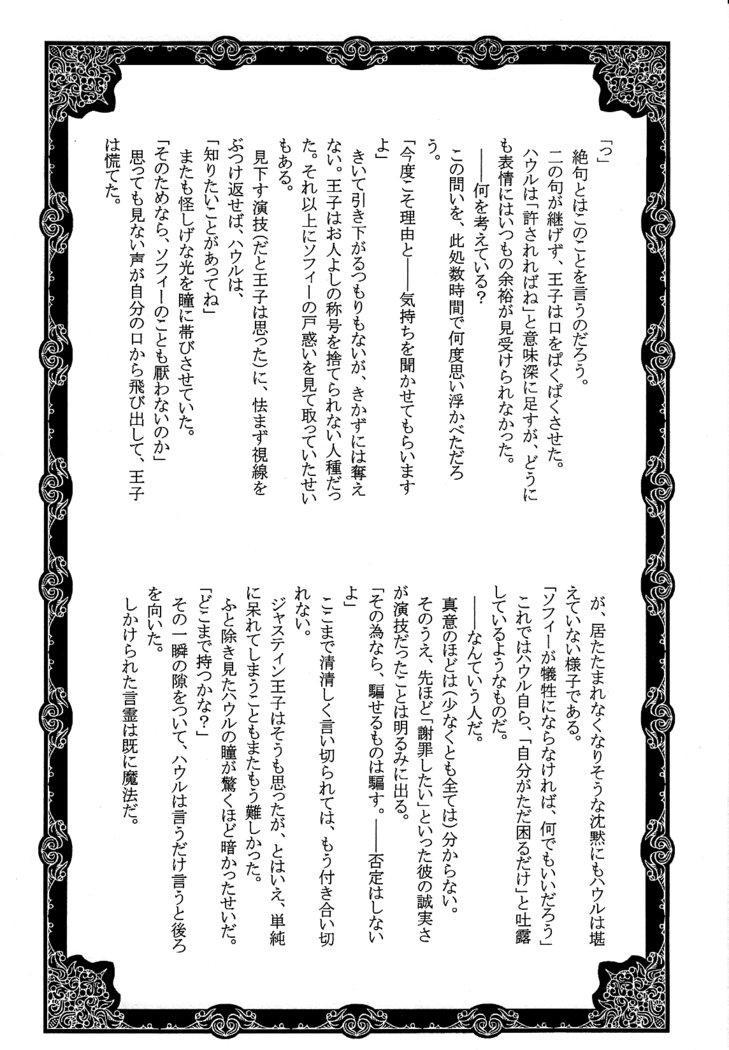 「っ」
　絶句とはこのことを言うのだろう。
　二の句が継げず、王子は口をぱくぱくさせた。
　ハウルは「許されればね」と意味深に足すが、どうに
も表情にはいつもの余裕が見受けられなかった。
　――何を考えている？
　この問いを、此処数時間で何度思い浮かべただろ
う。
「今度こそ理由と――気持ちを聞かせてもらいます
よ」
　きいて引き下がるつもりもないが、きかずには奪え
ない。王子はお人よしの称号を捨てられない人種だっ
た。それ以上にソフィーの戸惑いを見て取っていたせい
もある。
　見下す演技（だと王子は思った）に、怯まず視線を
ぶつけ返せば、ハウルは、
「知りたいことがあってね」
　またも怪しげな光を瞳に帯びさせていた。
「そのためなら、ソフィーのことも厭わないのか」
　思っても見ない声が自分の口から飛び出して、王子
は慌てた。
　が、居たたまれなくなりそうな沈黙にもハウルは堪
えていない様子である。
「ソフィーが犠牲にならなければ、何でもいいだろう」
　これではハウル自ら、「自分がただ困るだけ」と吐露
しているようなものだ。
　――なんていう人だ。
　真意のほどは（少なくとも全ては）分からない。
　そのうえ、先ほど「謝罪したい」といった彼の誠実さ
が演技だったことは明るみに出る。
「その為なら、騙せるものは騙す。――否定はしない
よ」
　ここまで清清しく言い切られては、もう付き合い切
れない。
　ジャスティン王子はそうも思ったが、とはいえ、単純
に呆れてしまうこともまたもう難しかった。
　ふと除き見たハウルの瞳が驚くほど暗かったせいだ。
「どこまで持つかな？」
　その一瞬の隙をついて、ハウルは言うだけ言うと後ろ
を向いた。
　しかけられた言霊は既に魔法だ。